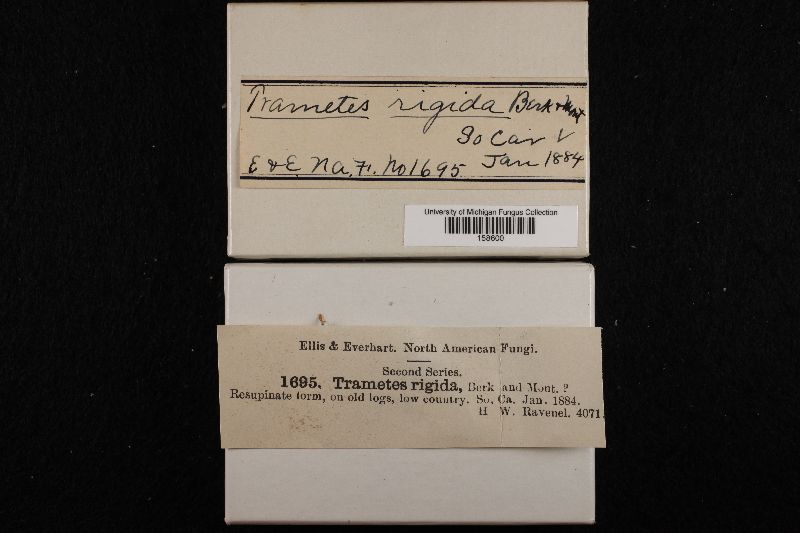 Trametes rigida Berk & Mont
So Car
E & E. N a. F. No 1695 Jan 1884
University of Michigan Fungus Collection
158600
Ellis & Everhart. North American Fungi.
Second Series.
1695. Trametes rigida, Berk and Mont. ?
Resupinate form, on old logs, low country. So, Ca. Jan. 1884.
H W. Ravenel. 4071.